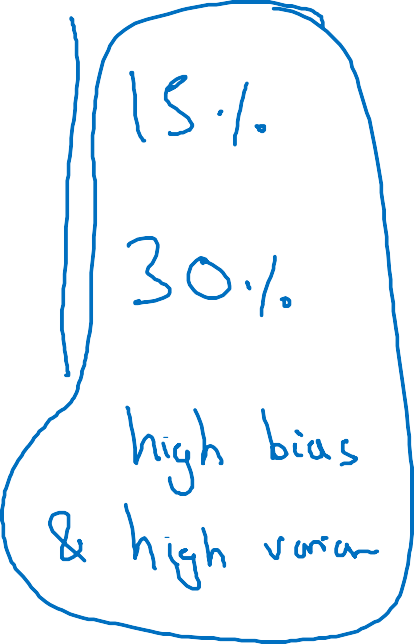 15%
30%
high bias
& high varian